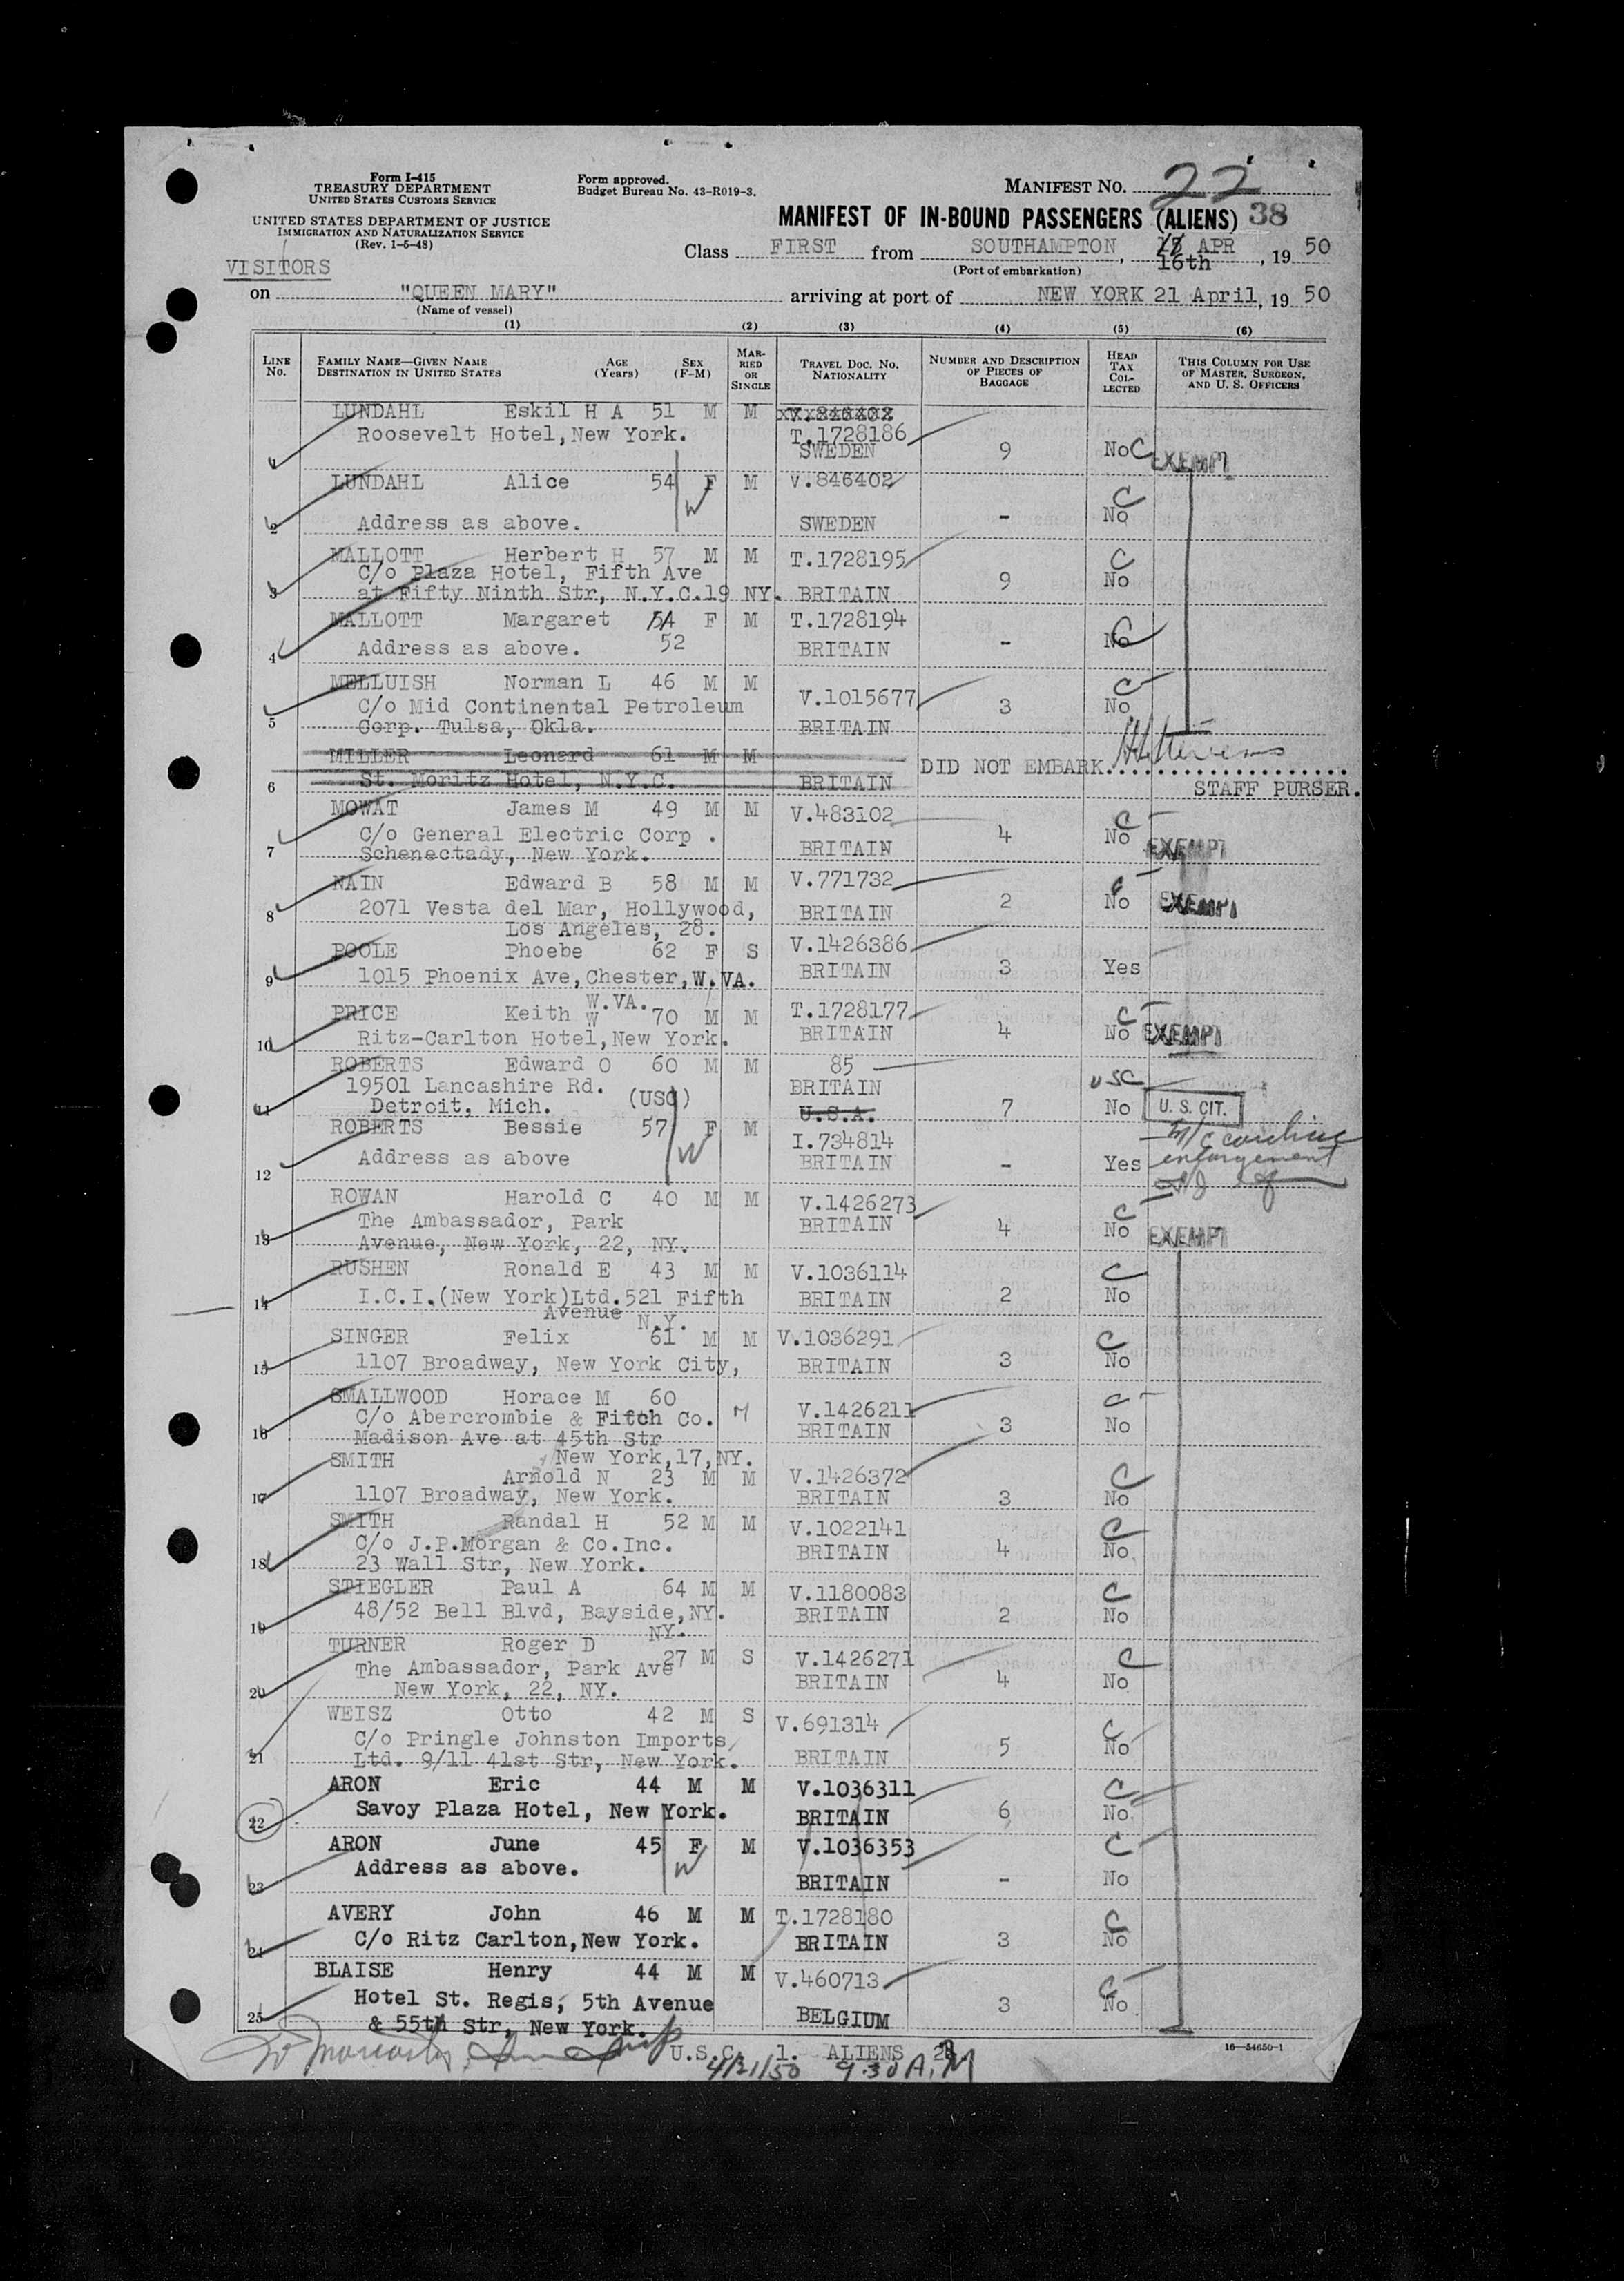 Form I-415
TREASURY DEPARTMENT
UNITED STATES CUSTOMS SERVICE
UNITED STATES DEPARTMENT OF JUSTICE
IMMIGRATION AND NATURALIZATION SERVICE
(Rev. 1-6-48)
VISITORS
Form approved.
Budget Bureau No. 43-R019-3.
MANIFEST NO. 22
MANIFEST OF IN-BOUND PASSENGERS (ALIENS) 38
Class FIRST from SOUTHAMPTON, APR 16th, 19 50
(Port of embarkation)
on "QUEEN MARY" arriving at port of NEW YORK 21 April, 19 50
(Name of vessel)
(1) (2) (3) (4) (5) (6)
LINE No. FAMILY NAME—GIVEN NAME DESTINATION IN UNITED STATES AGE (Years) SEX (F-M) MARRIED OR SINGLE TRAVEL DOC. NO. NATIONALITY NUMBER AND DESCRIPTION OF PIECES OF BAGGAGE HEAD TAX COLLECTED THIS COLUMN FOR USE OF MASTER, SURGEON, AND U. S. OFFICERS
LUNDAHL Eskil H A 51 M M V.846402
Roosevelt Hotel, New York. T.1728186
1 SWEDEN 9 No C EXEMPT
LUNDAHL Alice 54 F M V.846402 C
W
2 Address as above. SWEDEN - No
MALLOTT Herbert H 57 M M T.1728195 C
C/o Plaza Hotel, Fifth Ave 9 No
3 at Fifty Ninth Str, N.Y.C.19 NY. BRITAIN
MALLOTT Margaret 54 F M T.1728194 C
4 Address as above. 52 BRITAIN - No
MELLUISH Norman L 46 M M V.1015677 C
C/o Mid Continental Petroleum 3 No
5 Corp. Tulsa, Okla. BRITAIN
MILLER Leonard 61 M M
DID NOT EMBARK
6 St. Moritz Hotel, N.Y.C. BRITAIN STAFF PURSER.
MOWAT James M 49 M M V.483102 C
C/o General Electric Corp. 4 No
7 Schenectady, New York. BRITAIN EXEMPT
NAIN Edward B 58 M M V.771732 C
8 2071 Vesta del Mar, Hollywood, BRITAIN 2 No EXEMPT
Los Angeles, 28.
POOLE Phoebe 62 F S V.1426386
9 1015 Phoenix Ave, Chester, W.VA. BRITAIN 3 Yes
W.VA.
PRICE Keith W 70 M M T.1728177 C
10 Ritz-Carlton Hotel, New York. BRITAIN 4 No EXEMPT
ROBERTS Edward O 60 M M 85
19501 Lancashire Rd. BRITAIN USC
11 Detroit, Mich. (USC) U.S.A. 7 No U. S. CIT.
ROBERTS Bessie 57 F M I.734814
W
12 Address as above BRITAIN - Yes
ROWAN Harold C 40 M M V.1426273 C
The Ambassador, Park BRITAIN 4 No
13 Avenue, New York, 22, NY. EXEMPT
RUSHEN Ronald E 43 M M V.1036114 C
14 I.C.I.(New York)Ltd.521 Fifth BRITAIN 2 No
Avenue N.Y.
SINGER Felix 61 M M V.1036291 C
15 1107 Broadway, New York City, BRITAIN 3 No
SMALLWOOD Horace M 60 V.1426211 C
C/o Abercrombie & Fitch Co. M BRITAIN 3 No
16 Madison Ave at 45th Str
New York, 17, NY.
SMITH Arnold N 23 M M V.1426372 C
17 1107 Broadway, New York. BRITAIN 3 No
SMITH Randal H 52 M M V.1022141 C
C/o J.P.Morgan & Co.Inc. BRITAIN 4 No
18 23 Wall Str, New York.
STIEGLER Paul A 64 M M V.1180083 C
19 48/52 Bell Blvd, Bayside, NY. BRITAIN 2 No
NY.
TURNER Roger D 27 M S V.1426271 C
The Ambassador, Park Ave BRITAIN 4 No
20 New York, 22, NY.
WEISZ Otto 42 M S V.691314 C
C/o Pringle Johnston Imports 5 No
21 Ltd. 9/11 41st Str, New York. BRITAIN
ARON Eric 44 M M V.1036311 C
22 Savoy Plaza Hotel, New York. BRITAIN 6 No.
ARON June 45 F M V.1036353 C
W
23 Address as above. BRITAIN - No
AVERY John 46 M M T.1728180 C
24 C/o Ritz Carlton, New York. BRITAIN 3 No
BLAISE Henry 44 M M V.460713 C
Hotel St. Regis, 5th Avenue 3 No
25 & 55th Str, New York. BELGIUM
U.S.C. 1. ALIENS
4/21/50 9.30 A.M
16-54650-1